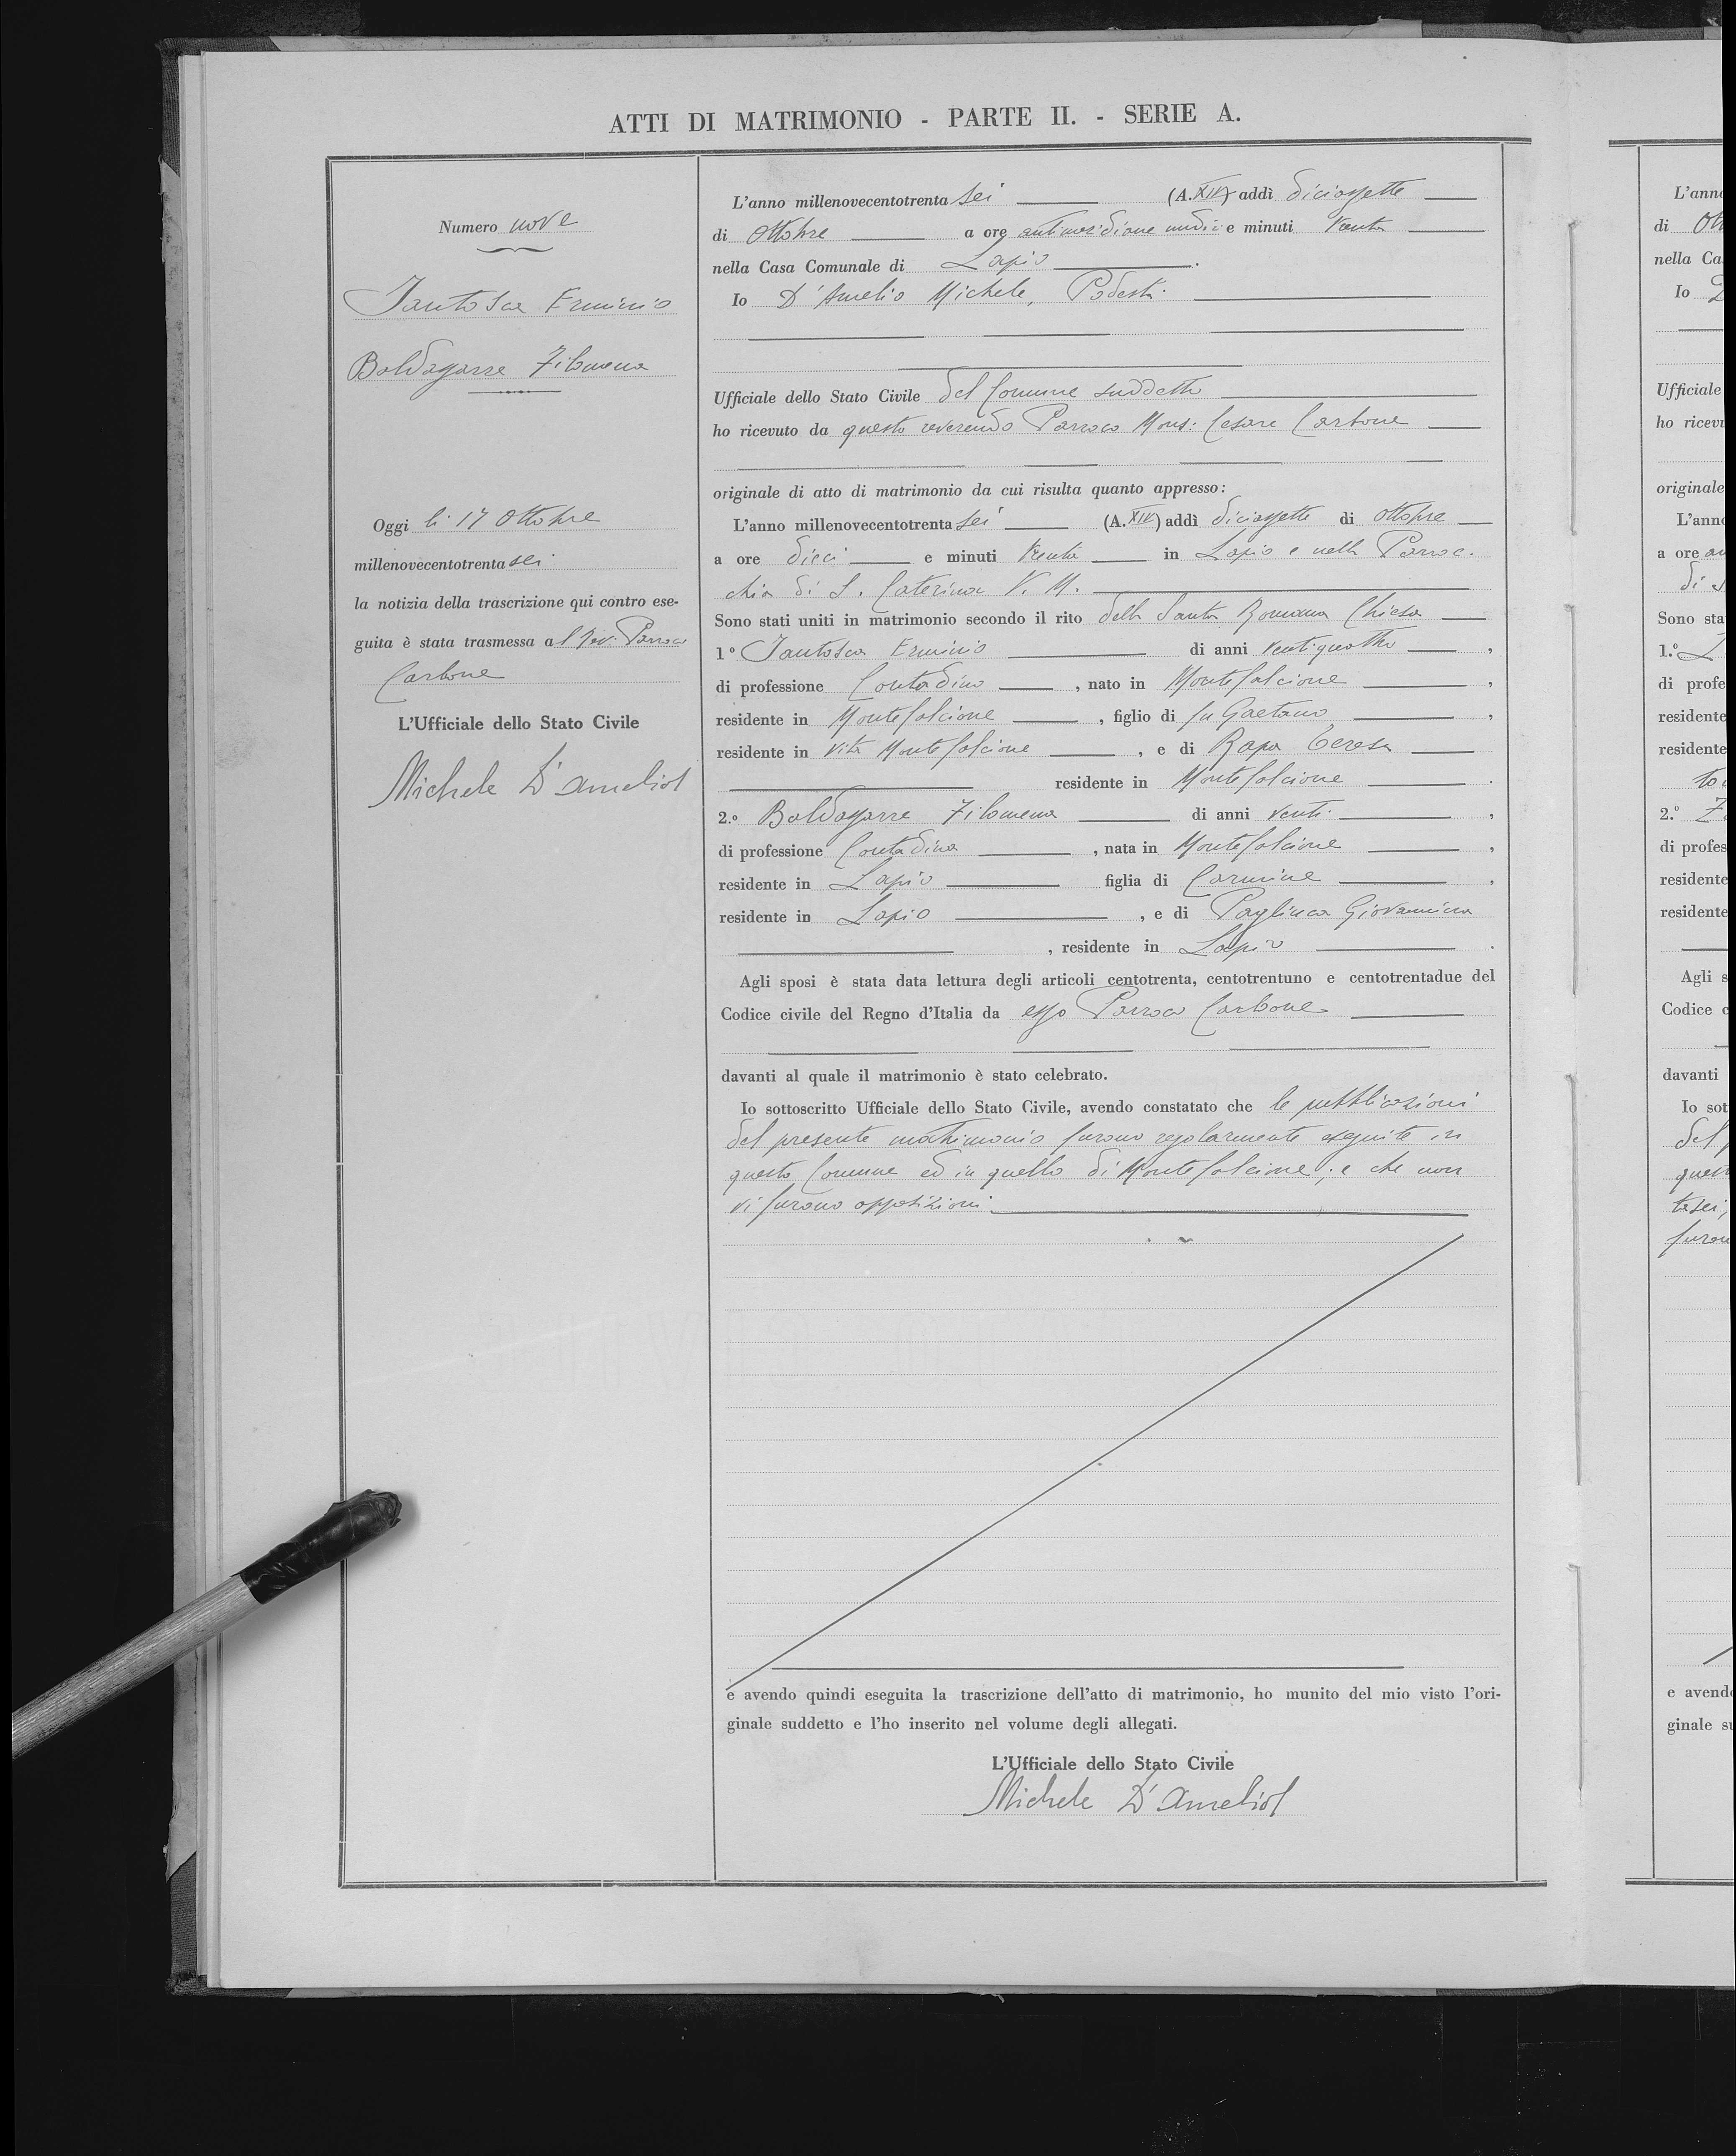 ATTI DI MATRIMONIO - PARTE II. - SERIE A.
Numero nove
Iantosca Erminio
Baldassarre Filomena
Oggi li 17 Ottobre
millenovecentotrentasei
la notizia della trascrizione qui contro ese-
guita è stata trasmessa al Rev. Parroco
Carbone
L'Ufficiale dello Stato Civile
Michele D'Amelio
L'anno millenovecentotrentasei (A. XIV) addì diciassette
di Ottobre a ore antimeridiane undici e minuti trenta
nella Casa Comunale di Lapio.
Io D'Amelio Michele, Podestà
Ufficiale dello Stato Civile del Comune suddetto
ho ricevuto da questo reverendo Parroco Mons: Cesare Carbone
originale di atto di matrimonio da cui risulta quanto appresso:
L'anno millenovecentotrentasei (A. XIV) addì diciassette di Ottobre
a ore dieci e minuti trenta in Lapio e nella Parroc.
chia di S. Caterina V. M.
Sono stati uniti in matrimonio secondo il rito della Santa Romana Chiesa
1º Iantosca Erminio di anni ventiquattro,
di professione Contadino, nato in Montefalcione,
residente in Montefalcione, figlio di fu Gaetano,
residente in vita Montefalcione, e di Rapa Teresa
residente in Montefalcione.
2.º Baldassarre Filomena di anni venti,
di professione Contadina, nata in Montefalcione,
residente in Lapio figlia di Carmine,
residente in Lapio, e di Pagliuca Giovannina
, residente in Lapio.
Agli sposi è stata data lettura degli articoli centotrenta, centotrentuno e centotrentadue del
Codice civile del Regno d'Italia da esso Parroco Carbone
davanti al quale il matrimonio è stato celebrato.
Io sottoscritto Ufficiale dello Stato Civile, avendo constatato che le pubblicazioni
del presente matrimonio furono regolarmente eseguite in
questo Comune ed in quello di Montefalcione; e che non
vi furono opposizioni.
e avendo quindi eseguita la trascrizione dell'atto di matrimonio, ho munito del mio visto l'ori-
ginale suddetto e l'ho inserito nel volume degli allegati.
L'Ufficiale dello Stato Civile
Michele D'Amelio
L'anno
di Ott
nella Ca
Io D
Ufficiale
ho ricevu
originale
L'anno
a ore an
di S
Sono sta
1.º
di profe
residente
residente
2.º
di profes
residente
residente
Agli s
Codice c
davanti
Io sot
del p
quest
tasei,
furon
e avendo
ginale su